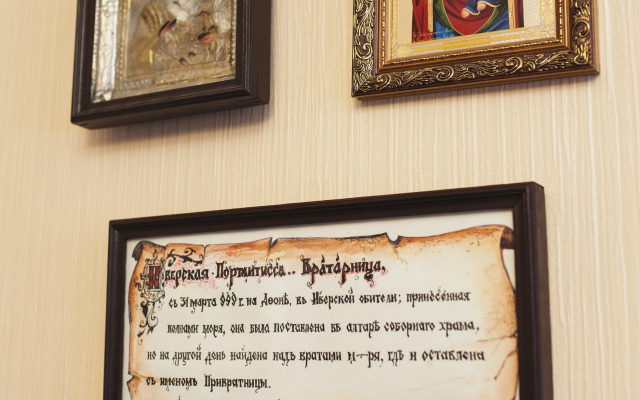 Иверская. Портаитисса.. Вратарница,
съ 31 марта 999 г. на Аѳонѣ, въ Иверской обители; принесённая
волнами моря, она была поставлена въ алтарѣ соборнаго храма,
но на другой день найдена надъ вратами м-ря, гдѣ и оставлена
съ именемъ Привратницы.